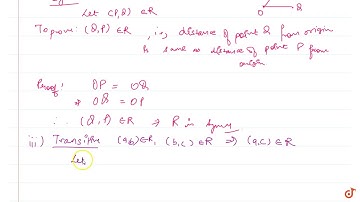 Let (P,Q) ∈R
O
To prove: (Q,P) ∈R i.e, distance of point Q from origin
is same as distance of point P from
origin
Proof: OP = OQ
⇒ OQ = OP
∴ (Q,P) ∈R ⇒ R is symm
iii) Transitive (a,b)∈R, (b,c) ∈R ⇒ (a,c) ∈R
Let